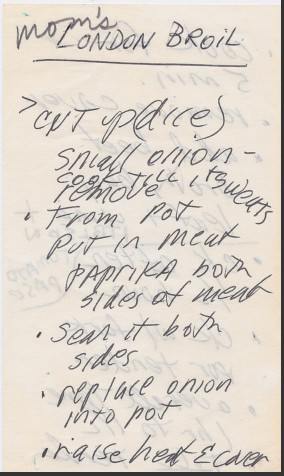 mom's
LONDON BROIL
> cut up (dice)
small onion -
cook till it sweats
remove
• from pot
put in meat
PAPRIKA both
sides of meat
• sear it both
sides
• replace onion
into pot
• raise heat & cover